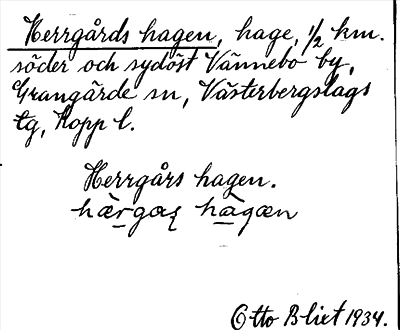 Herrgårds hagen, hage, 1/2 km.
söder och sydöst Vännebo by,
Grangärde sn, Västerbergslags
tg, Kopp l.
Herrgårs hagen.
hagen
Otto Blixt 1934.